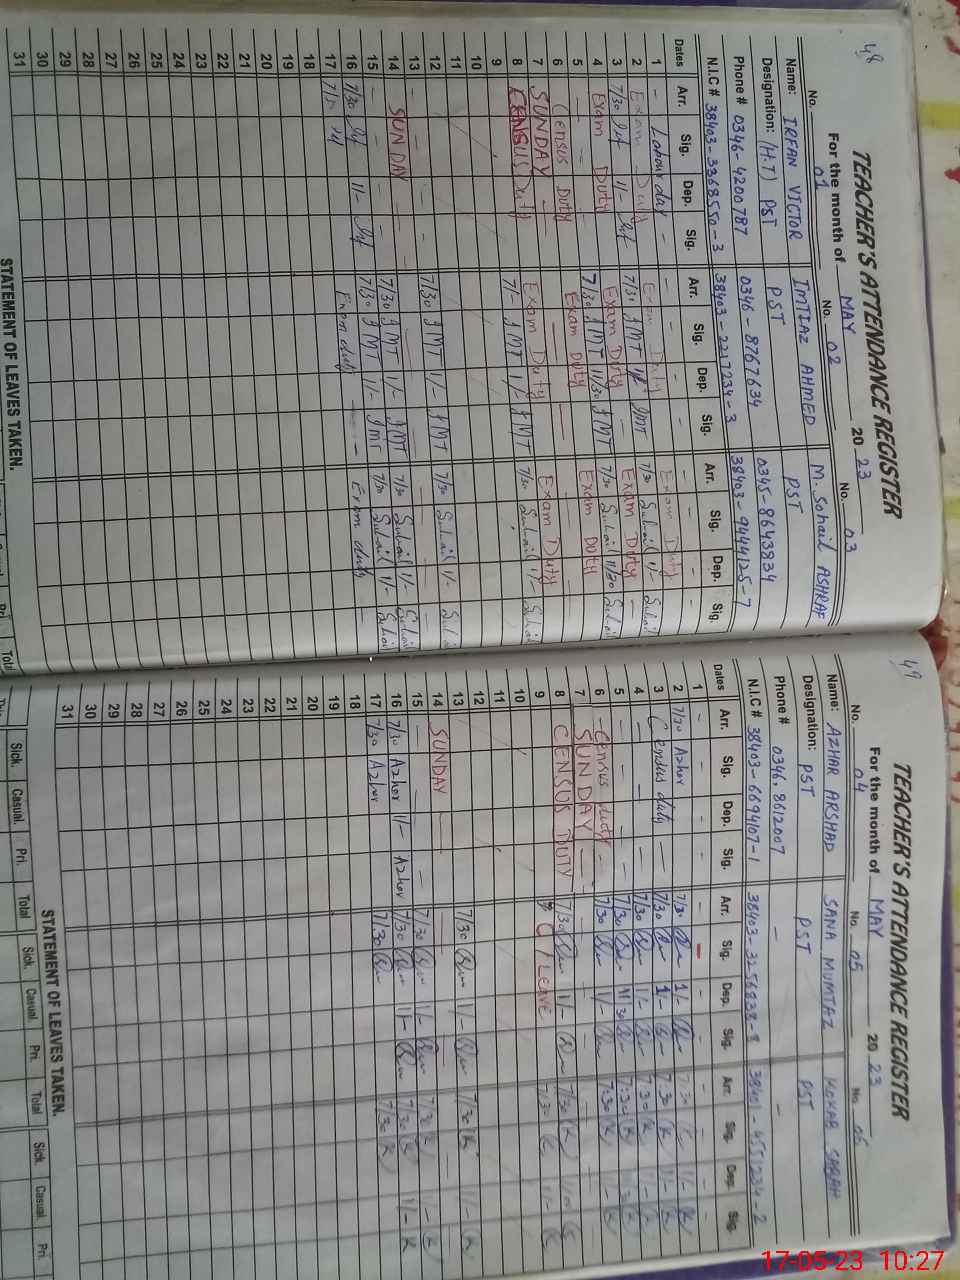 48
TEACHER'S ATTENDANCE REGISTER
For the month of MAY 2023
No. 01 No. 02 No. 03
Name: IRFAN VICTOR IMTIAZ AHMED M. Sohail ASHRAF
Designation: (H.T) PST PST PST
Phone # 0346-4200787 0346-8767634 0345-8643834
N.I.C # 38403-3368550-3 38403-2217234-3 38403-9444125-7
Dates Arr. Sig. Dep. Sig. Arr. Sig. Dep. Sig. Arr. Sig. Dep. Sig.
1 - Labour day - - - - - - - - -
2 Exam Duty Exam Duty Exam Duty
3 7/30 1/- 7/30 JMT 1/- JMT 7/30 Suhail 1/- Suhail
4 Exam Duty Exam Duty Exam Duty
5 7/30 JMT 11/30 JMT 7/30 Suhail 11/30 Suhail
6 Census Duty Exam Duty Exam Duty
7 SUNDAY
8 CENSUS Duty Exam Duty Exam Duty
9 7/- JMT 1/- JMT 7/30 Suhail 1/- Suhail
10
11
12 7/30 JMT 1/- JMT 7/30 Suhail 1/-
13
14 SUNDAY 7/30 JMT 1/- JMT 7/30 Suhail 1/- Suhail
15 7/30 JMT 1/- JMT 7/30 Suhail 1/- Suhail
16 7/30 1/- Exam duty Exam duty
17 7/30
18
19
20
21
22
23
24
25
26
27
28
29
30
31
STATEMENT OF LEAVES TAKEN.
49
TEACHER'S ATTENDANCE REGISTER
For the month of MAY 2023
No. 04 No. 05 No. 06
Name: AZHAR ARSHAD SANA MUMTAZ KOKAB SABAH
Designation: PST PST PST
Phone # 0346,8612007 - -
N.I.C # 38403-6694107-1 38403-3256838-8 38401-4551234-2
Dates Arr. Sig. Dep. Sig. Arr. Sig. Dep. Sig. Arr. Sig. Dep. Sig.
1 - - - - - - - - - -
2 7/30 Azhar 7/30 1/- 7/30 1/-
3 Census duty 7/30 1/- 7.30 1/-
4 7/30 1/- 7/30 1/-
5 7/30 11/30 7:30
6 Census duty 7/30 1/- 7.30 1/-
7 SUNDAY
8 CENSUS DUTY 7/30 1/- 7/30
9 C/LEAVE 7/30 1/-
10
11
12
13 7/30 1/- 7/30 1/-
14 SUNDAY
15 7/30 1/- 7/30 1/-
16 7/30 Azhar 1/- Azhar 7/30 1/- 7/30 1/-
17 7/30 Azhar 7/30 7/30
18
19
20
21
22
23
24
25
26
27
28
29
30
31
STATEMENT OF LEAVES TAKEN.
Sick. Casual. Pri. Total Sick. Casual Pri. Total Sick Casual. Pri.
17-05-23 10:27